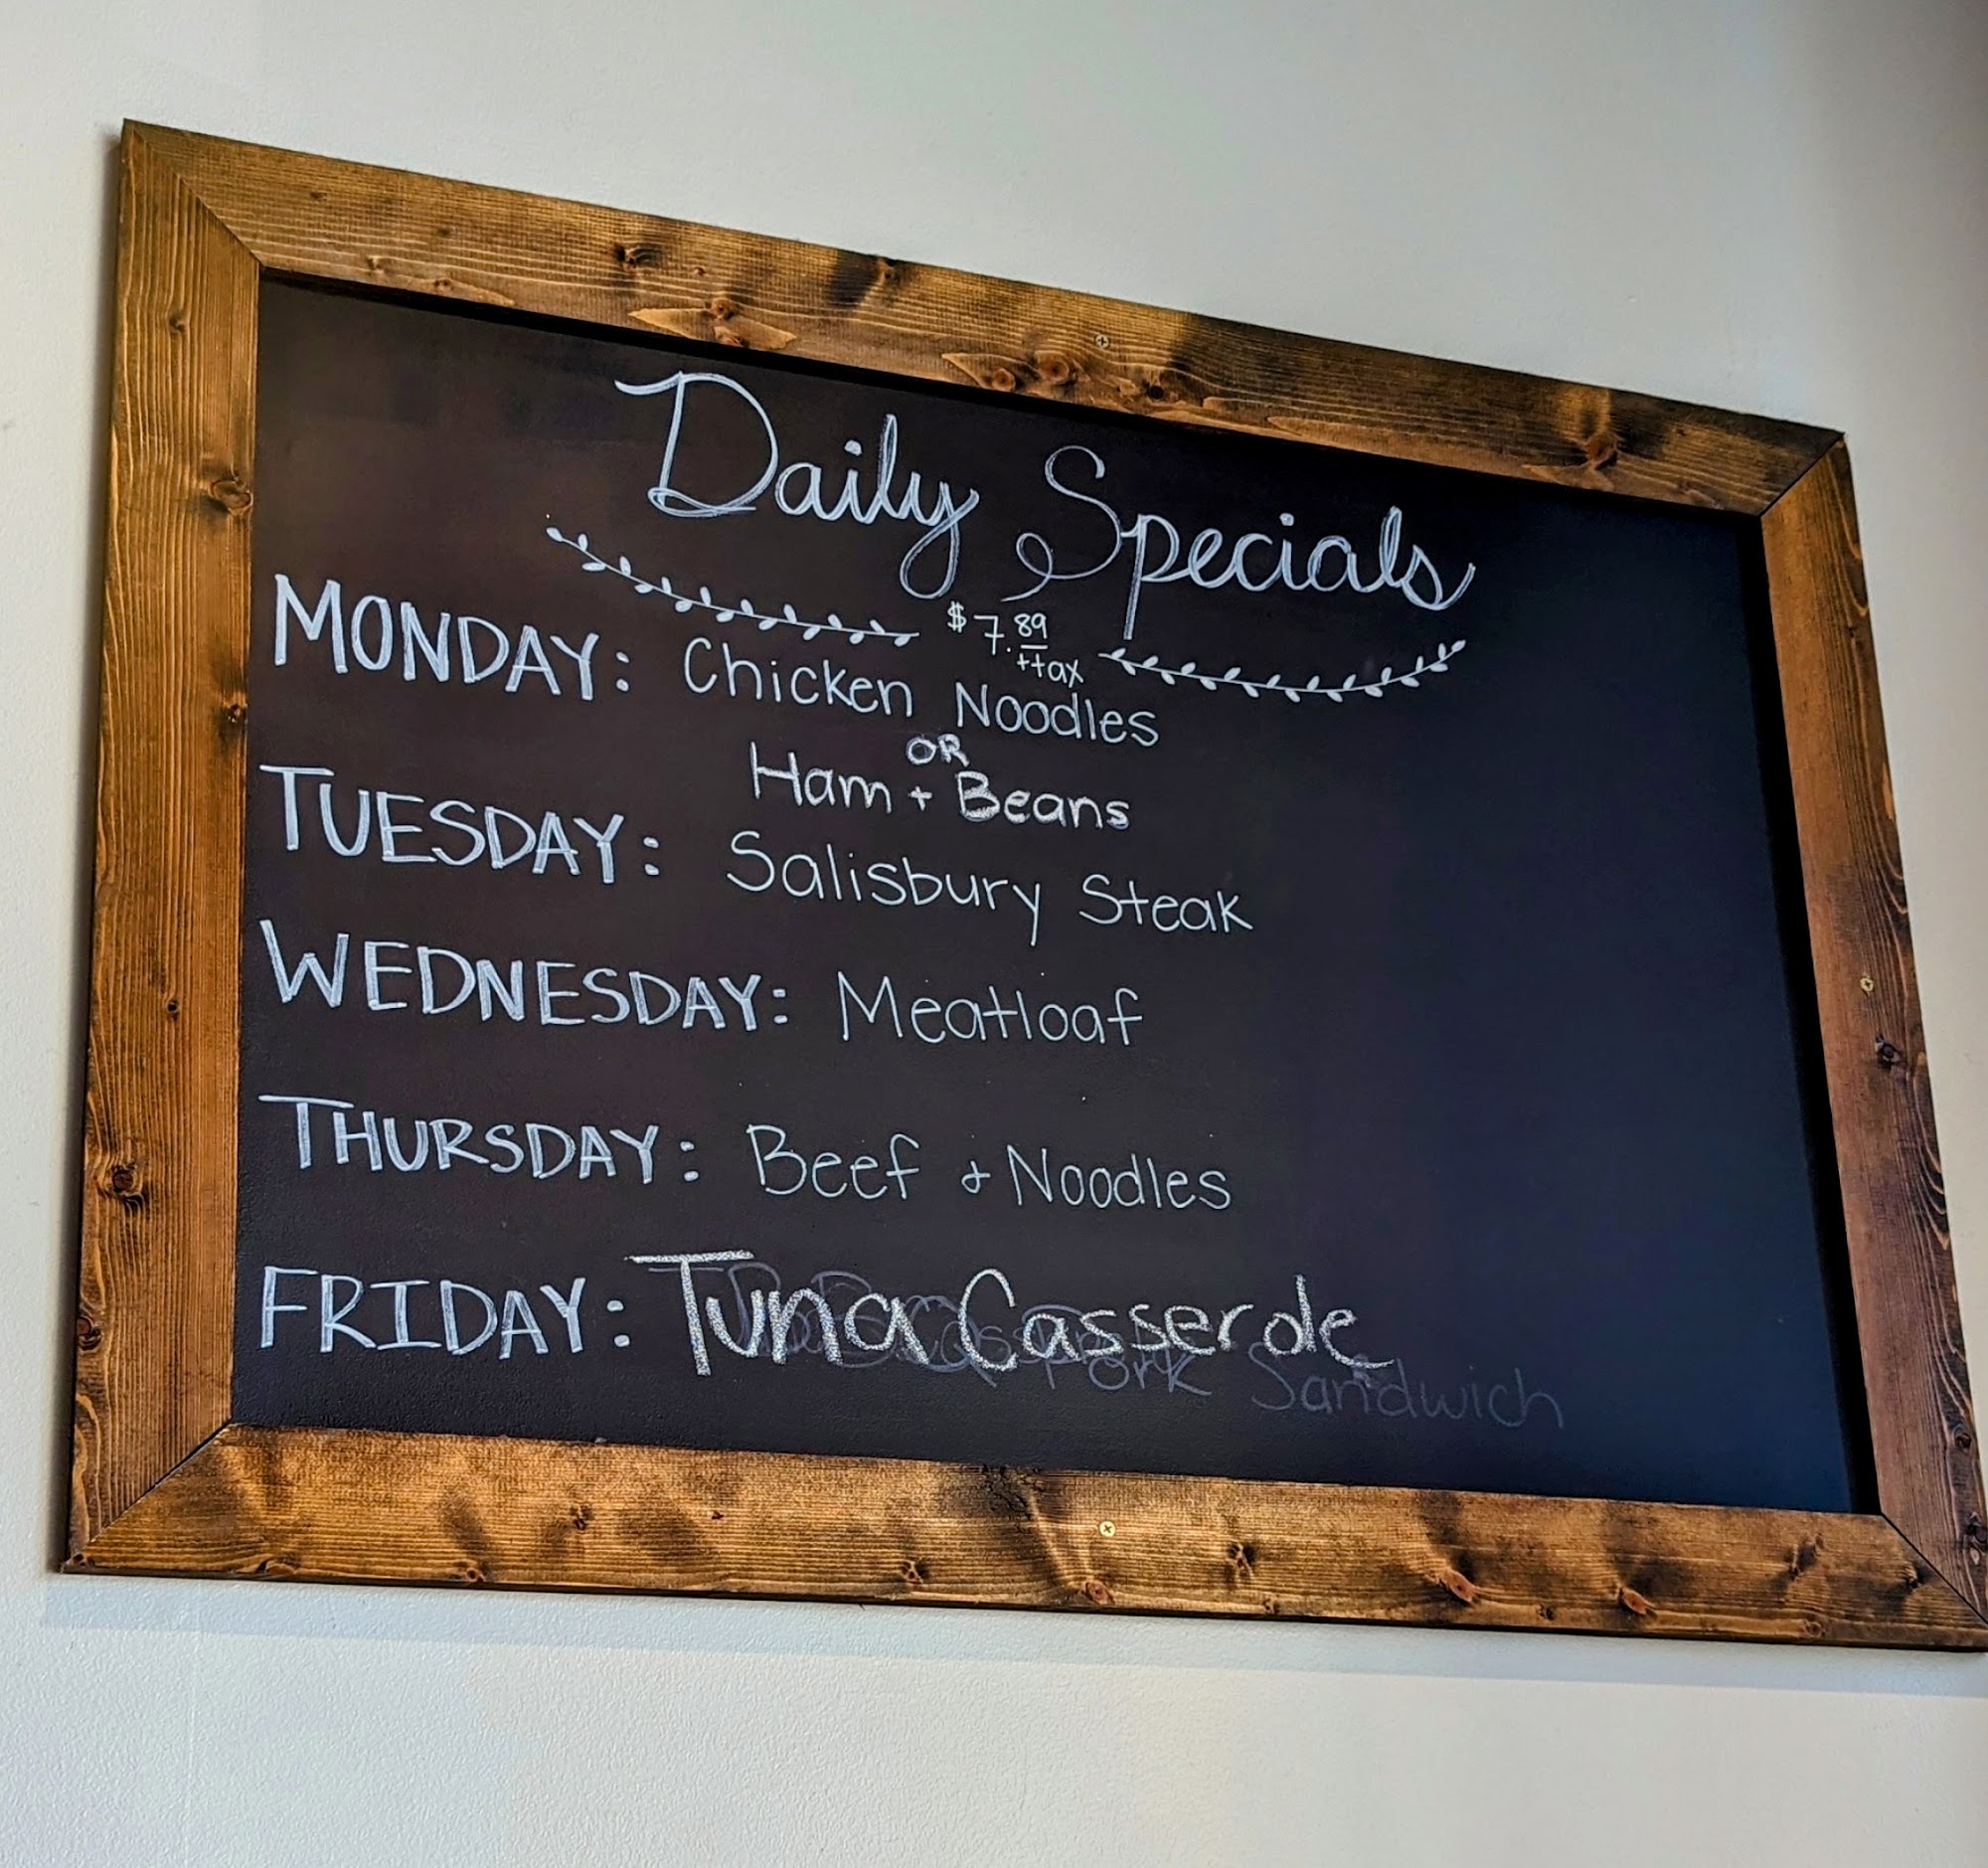 Daily Specials
$7.89
+tax
MONDAY: Chicken Noodles
OR
Ham + Beans
TUESDAY: Salisbury Steak
WEDNESDAY: Meatloaf
THURSDAY: Beef + Noodles
FRIDAY: Tuna Casserole
Pork Sandwich